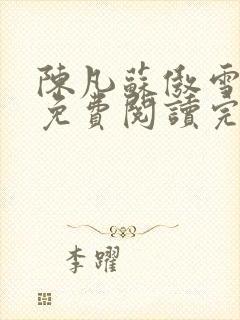 陳凡蘇傲雪
免費閱讀完
李曜